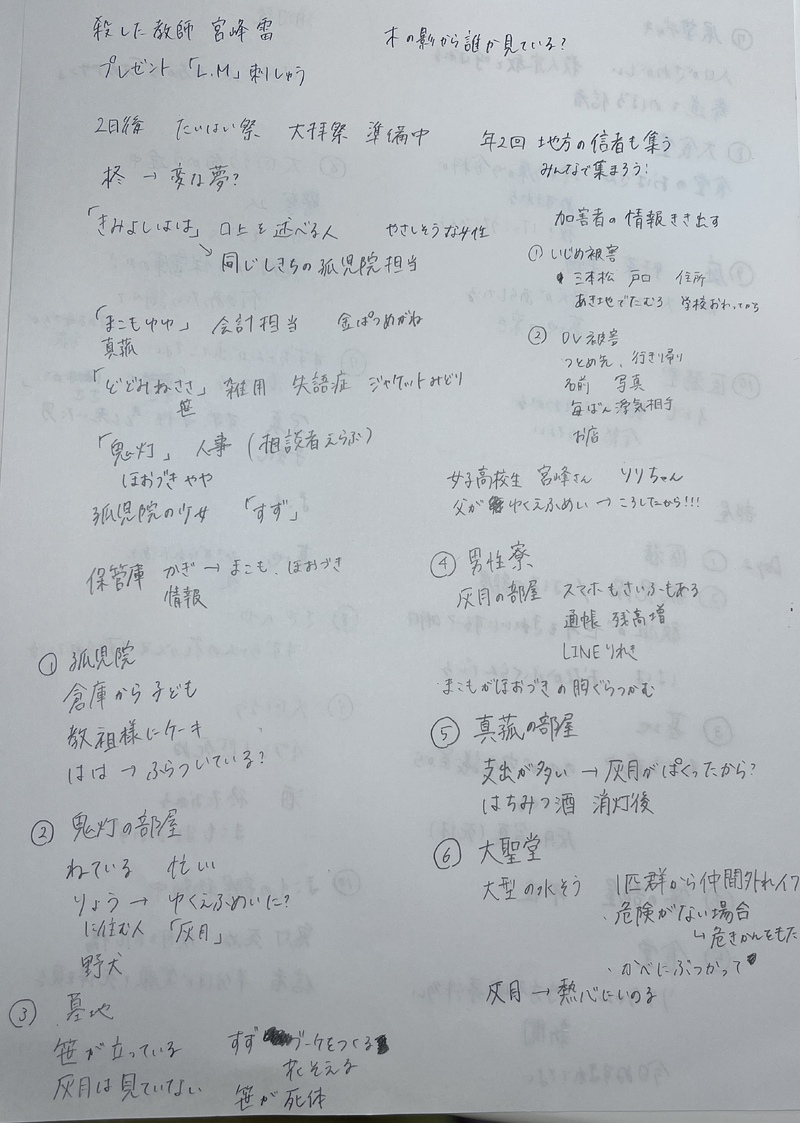 殺した教師 宮峰 雷
木の影から誰か見ている?
プレゼント 「L.M」刺しゅう
2日後 たいはい祭 大拝祭 準備中
年2回 地方の信者も集う
みんなで集まろう!
柊 → 変な夢?
「きみよしはは」 口上を述べる人 やさしそうな女性
↘ 同じしきちの孤児院担当
「まこもゆゆ」 会計担当 金ぱつめがね
真菰
「どどみねささ」 雑用 失語症 ジャケットみどり
笹
「鬼灯」 人事 (相談者えらぶ)
ほおづき やや
孤児院の少女 「すず」
保管庫 かぎ → まこも、ほおづき
情報
加害者の情報きき出す
① いじめ被害
三本松 戸口 住所
あき地でたむろ 学校おわってから
② DV被害
つとめ先、行き帰り
名前 写真
毎ばん浮気相手
お店
女子高校生 宮峰さん りりちゃん
父がゆくえふめい → ころしたから!!!
① 孤児院
倉庫から子ども
教祖様にケーキ
はは → ふらついている?
② 鬼灯の部屋
ねている 忙しい
りょう → ゆくえふめいに?
に住む人 「灰月」
野犬
③ 墓地
笹が立っている
灰月は見ていない
すず ブーケをつくる
花そえる
笹が死体
④ 男性寮
灰月の部屋 スマホもさいふもある
通帳 残高増
LINEりれき
まこもがほおづきの胸ぐらつかむ
⑤ 真菰の部屋
支出が多い → 灰月がぱくったから?
はちみつ酒 消灯後
⑥ 大聖堂
大型の水そう 1匹群から仲間外れイワ
・危険がない場合
↳ 危きかんをもた
・かべにぶつかって
灰月 → 熱心にいのる